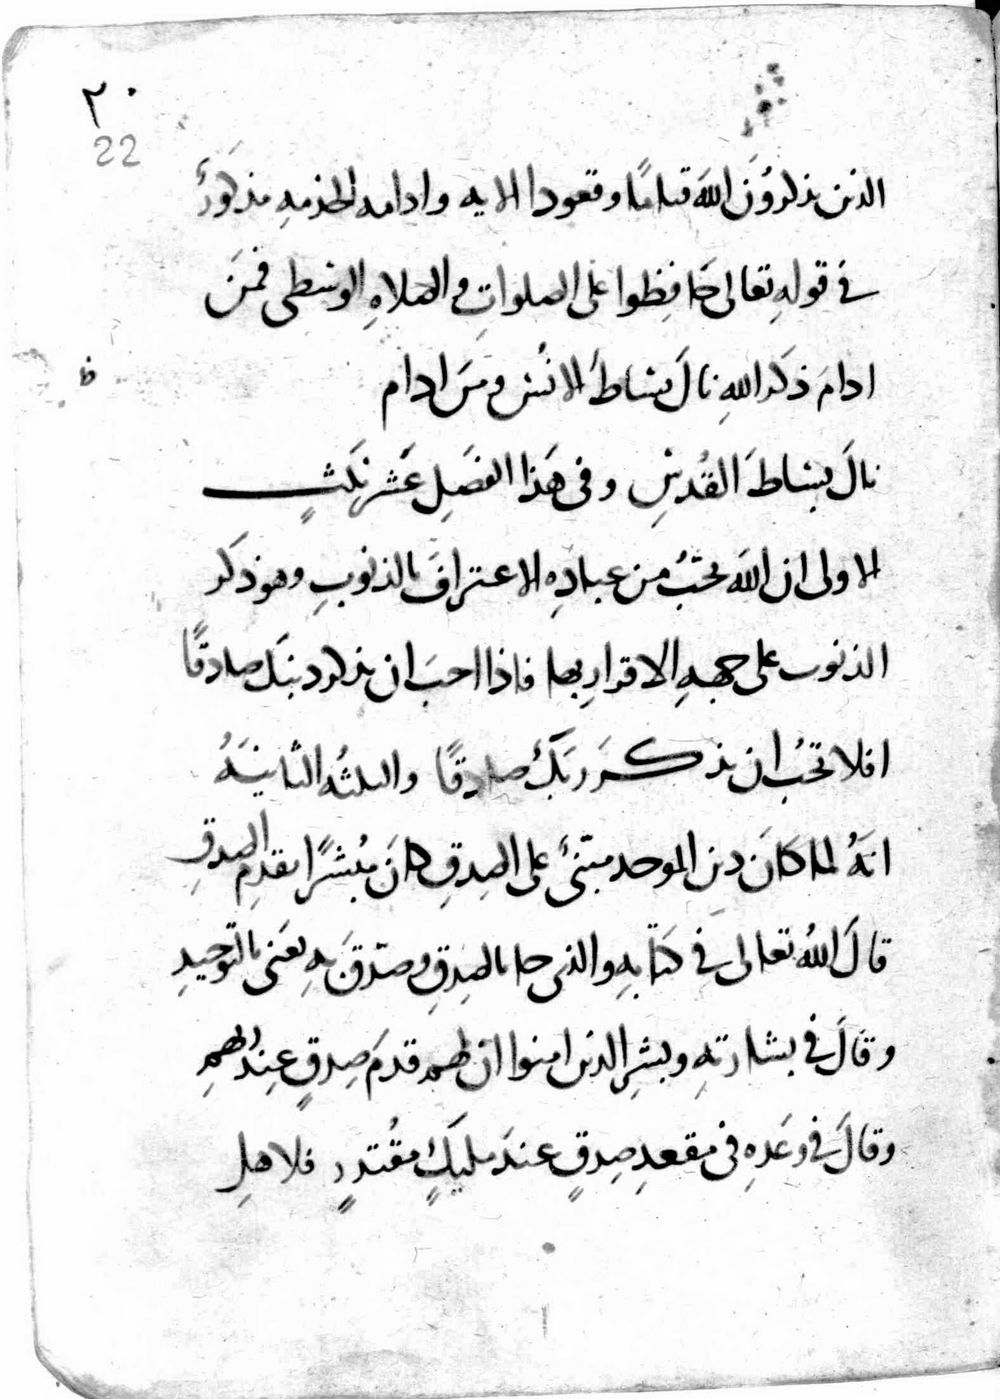 ٢٠
22
الذين يذكرون الله قياما وقعودا الايه وادامه الخدمه مذكورٌ
في قوله تعالى حَافِظوا على الصلواتِ والصلاةِ الوسْطى فمَن
ادامَ ذكرَ اللهِ نالَ بسَاطَ الانْس ومَن ادام
ط
نالَ بسَاطَ القُدسِ وفى هَذا الفصَلِ عَشر نكَتٍ
الاولى ان اللهَ يحَبُّ من عبادِهِ الاعترافَ بالذنوبِ وهو ذكر
الذنوب على جهةِ الاقرارِ بها فاذا احبَ ان يذكر دينَكَ صادقًا
افلا تحُب ان يذكرَ ربَكَ صادقًا والنكتُه الثانيَهُ
انهُ لما كانَ دين الموحد مبنىٌ على الصِدقِ كانَ مُبشرًا بقدم الصِدقِ
قالَ اللهُ تعالى في كتابِهِ والذى جا بالصِدقِ وصَدّقَ بهِ يعَنى بالتوحيدِ
وقالَ في بشارتهِ وبشرِ الذين امنوا ان لهم قدمَ صِدقٍ عِندَ ربهم
وقالَ في وعَدِهِ فى مقعدِ صِدقٍ عندَ مليكٍ مقُتدرٍ فلاهلِ